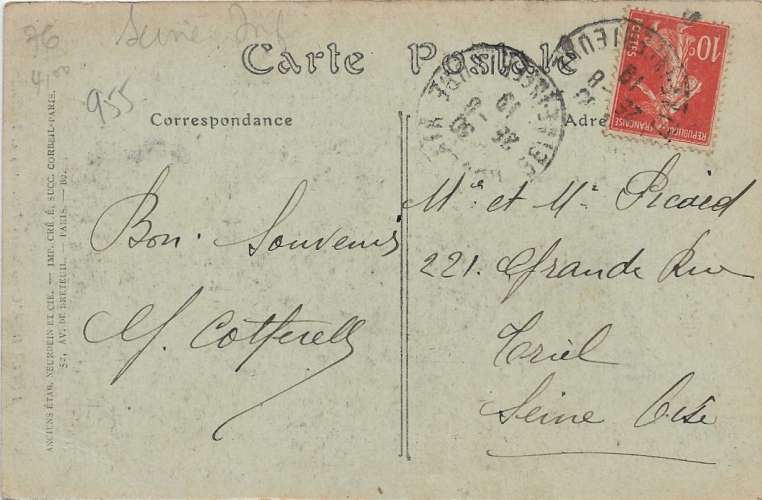 76
Seine Inf
4,00
955
Carte Postale
Correspondance
Adre
10c
POSTES
REPUBLIQUE FRANCAISE
Bon Souvenir
M. Cotterell
Mr et Me Picard
221. Grande Rue
Triel
Seine Oise
ANCIENS ÉTAB. NEURDEIN ET CIE. — IMP. CRÉTÉ, SUCC. CORBEIL-PARIS.
52, AV. DE BRETEUIL. — PARIS. —